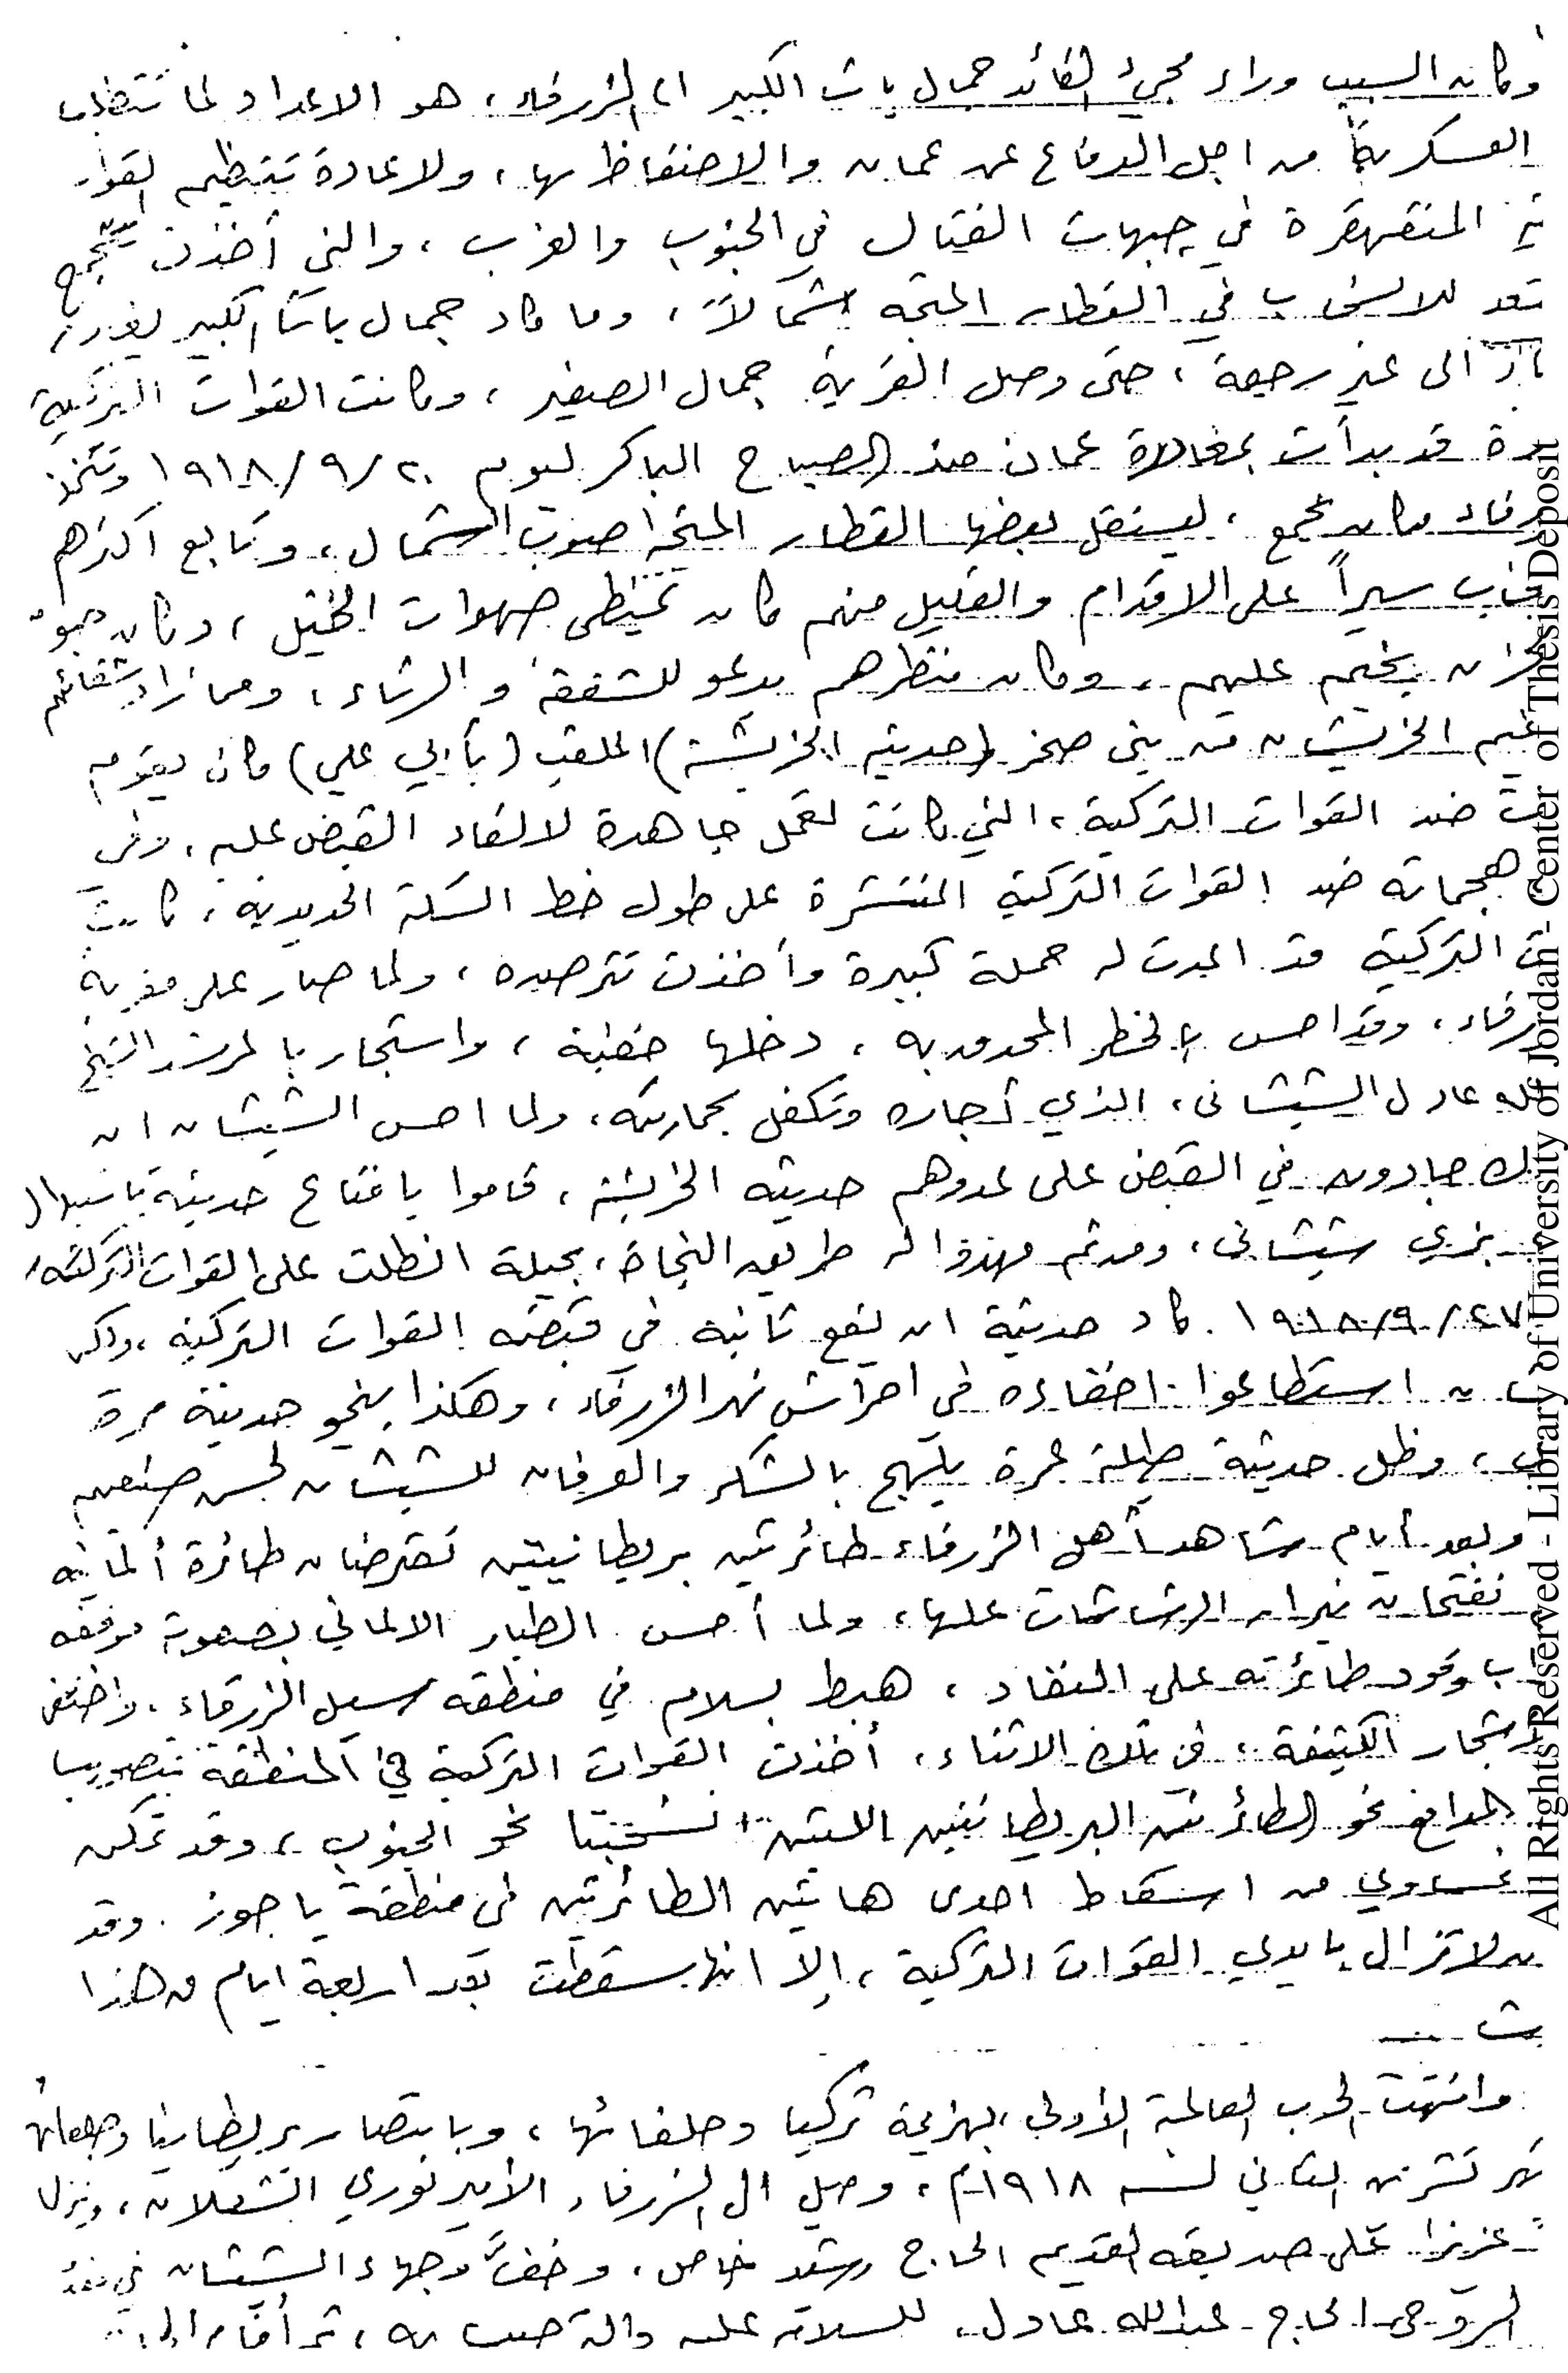 وكان السبب وراء مجيء القائد جمال باشا الكبير الى الزرقاء، هو الاعداد لما تتطلب
العسكرية من اجل الدفاع عن عمان والاحتفاظ بها، ولاعادة تنظيم القوات
المتقهقرة في جبهات القتال في الجنوب والغرب، والتي أخذت تتجمع
للانسحاب في القطار المتجه شمالاً، وما كاد جمال باشا الكبير يغادر
الى غير رجعة، حتى وصل القرية جمال الصغير، وكانت القوات التركية
قد بدأت بمغادرة عمان منذ الصباح الباكر ليوم ٢٠/٩/١٩١٨ وتتخذ
مكان تجمع، ليستقل بعضها القطار المتجه صوب الشمال، وتابع اكثرهم
سيراً على الاقدام والقليل منهم كان يمتطي صهوات الخيل، وكان جو
يخيم عليهم، وكان منظرهم يدعو للشفقة و الرثاء، ومما زاد شقائهم
الخريشان من بني صخر (حديثه الخريشة) الملقب (بأبي علي) كان يقوم
ضد القوات التركية، التي كانت تعمل جاهدة لالقاء القبض عليه، وفي
هجماته ضد القوات التركية المنتشرة على طول خط السكة الحديدية، كانت
التركية قد اعدت له حملة كبيرة وأخذت تترصده، ولما صار على مقربة
وقد احس بالخطر المحدق به، دخلها خفية، واستجار بالمرشد الشيخ
عادل الشيشاني، الذي أجاره وتكفل بحمايته، ولما احس الشيشان ان
جادون في القبض على عدوهم حديثه الخريشة، قاموا باقناع حديثة باستبدال
بزي شيشاني، ومن ثم مهدوا له طريق النجاة، بحيلة انطلت على القوات التركية،
٢٧/٩/١٩١٨. كاد حديثة ان يقع ثانية في قبضة القوات التركية، ولكن
استطاعوا اخفاءه في احراش نهر الزرقاء، وهكذا ينجو حديثة مرة
وظل حديثة طيلة عمره يلهج بالشكر والعرفان للشيشان لحسن صنيعهم
وبعد أيام شاهد أهل الزرقاء طائرتين بريطانيتين تعترضان طائرة ألمانية
تفتحان نيران الرشاشات عليها، ولما أحس الطيار الالماني بصعوبة موقفه
وقود طائرته على النفاد، هبط بسلام في منطقة سيل الزرقاء، واختفى
الكثيفة، في تلك الاثناء، أخذت القوات التركية في المنطقة بتصويب
المدافع نحو الطائرتين البريطانيتين اللتين انسحبتا نحو الجنوب، وقد تمكن
من اسقاط احدى هاتين الطائرتين في منطقة ياجوز. وقد
لاتزال بايدي القوات التركية، إلا انها سقطت بعد اربعة ايام من هذا
وانتهت الحرب العالمية الأولى، بهزيمة تركيا وحلفائها، وبانتصار بريطانيا وحلفائها
تشرين الثاني لسنة ١٩١٨م، وصل الى الزرقاء الأمير نوري الشعلان، ونزل
عزيزا على صديقه القديم الحاج رشيد خاص، وخفَّ وجهاء الشيشان في
الروحي الحاج عبدالله عادل، للسلام عليه والترحيب به،
All Rights Reserved - Library of University of Jordan - Center of Thesis Deposit